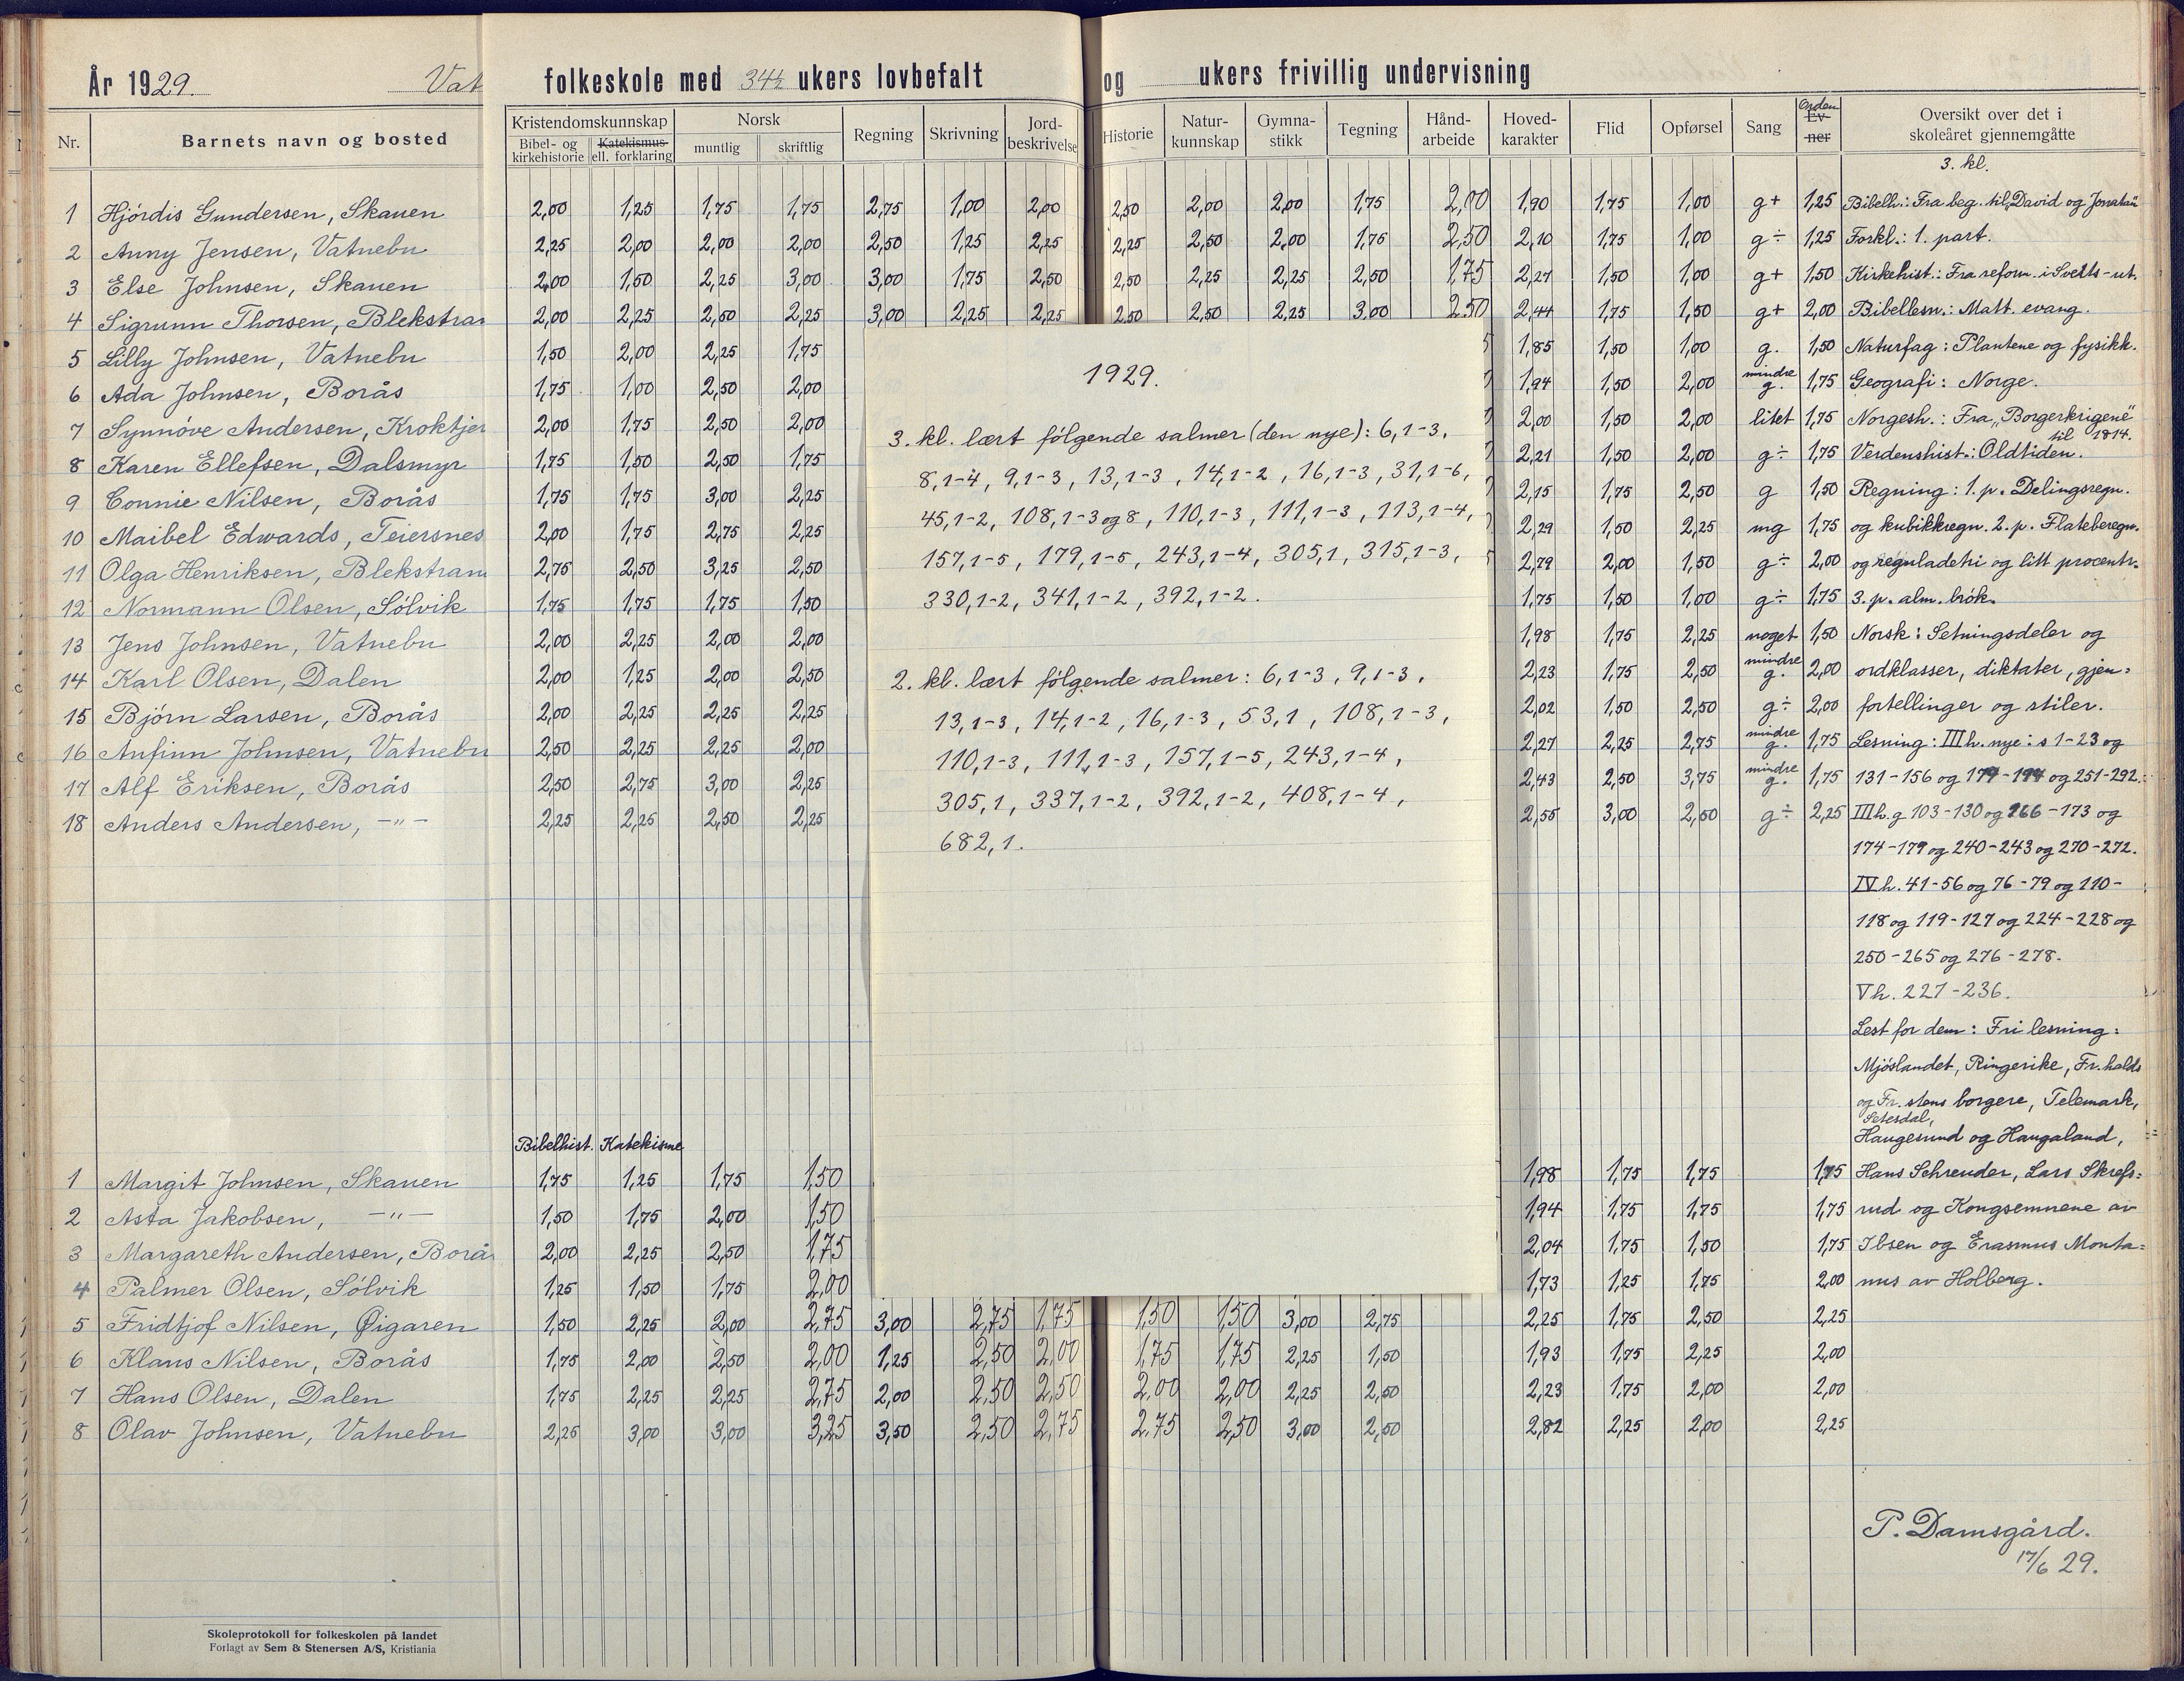 År 1929. Vat folkeskole med 34½ ukers lovbefalt og ukers frivillig undervisning
Nr. Barnets navn og bosted Kristendomskunnskap Bibel- og kirkehistorie Katekismus ell. forklaring Norsk muntlig skriftlig Regning Skrivning Jord-beskrivelse Historie Natur-kunnskap Gymna-stikk Tegning Hånd-arbeide Hoved-karakter Flid Opførsel Sang Orden Ev-ner Oversikt over det i skoleåret gjennemgåtte
3. kl.
1 Hjördis Gundersen, Skauen 2,00 1,25 1,75 1,75 2,75 1,00 2,00 2,50 2,00 2,00 1,75 2,00 1,90 1,75 1,00 g+ 1,25 Bibelh.: Fra beg. til David og Jonatan
2 Anny Jensen, Vatnebu 2,25 2,00 2,00 2,00 2,50 1,25 2,25 2,25 2,50 2,00 1,75 2,50 2,10 1,75 1,00 g÷ 1,25 Forkl.: 1. part.
3 Else Johnsen, Skauen 2,00 1,50 2,25 3,00 3,00 1,75 2,50 2,50 2,25 2,25 2,50 1,75 2,27 1,50 1,00 g+ 1,50 Kirkehist.: Fra reform. i Sveits - ut.
4 Sigrunn Thorsen, Blekstran 2,00 2,25 2,50 2,25 3,00 2,25 2,25 2,50 2,50 2,25 3,00 2,50 2,44 1,75 1,50 g+ 2,00 Bibellesn.: Matt. evang.
5 Lilly Johnsen, Vatnebu 1,50 2,00 2,25 1,75 1,85 1,50 1,00 g. 1,50 Naturfag: Plantene og fysikk.
6 Ada Johnsen, Borås 1,75 1,00 2,50 2,00 1,94 1,50 2,00 mindre g. 1,75 Geografi: Norge.
7 Synnöve Andersen, Kroktjer 2,00 1,75 2,50 2,00 2,00 1,50 2,00 litet 1,75 Norgesh.: Fra „Borgerkrigene" til 1814.
8 Karen Ellefsen, Dalsmyr 1,75 1,50 2,50 1,75 2,21 1,50 2,00 g÷ 1,75 Verdenshist.: Oldtiden.
9 Connie Nilsen, Borås 1,75 1,75 3,00 2,25 2,15 1,75 2,50 g 1,50 Regning: 1. p. Delingsregn.
10 Maibel Edwards, Teiersnes 2,00 1,75 2,75 2,25 2,29 1,50 2,25 mg 1,75 og kubikkregn. 2. p. Flateberegn.
11 Olga Henriksen, Blekstran 2,75 2,50 3,25 2,50 2,79 2,00 1,50 g÷ 2,00 og reguladetri og litt procentr.
12 Normann Olsen, Sölvik 1,75 1,75 1,75 1,50 1,75 1,50 1,00 g÷ 1,75 3. p. alm. brök.
13 Jens Johnsen, Vatnebu 2,00 2,25 2,00 2,00 1,98 1,75 2,25 noget 1,50 Norsk: Setningsdeler og
14 Karl Olsen, Dalen 2,00 1,25 2,00 2,50 2,23 1,75 2,50 mindre g. 2,00 ordklasser, diktater, gjen=
15 Björn Larsen, Borås 2,00 2,25 2,25 2,25 2,02 1,50 2,50 g÷ 2,00 fortellinger og stiler.
16 Anfinn Johnsen, Vatnebu 2,50 2,25 2,25 2,00 2,27 2,25 2,75 mindre g. 1,75 Lesning: III h. nye: s 1-23 og
17 Alf Eriksen, Borås 2,50 2,75 3,00 2,25 2,43 2,50 3,75 mindre g. 1,75 131-156 og 179-194 og 251-292.
18 Anders Andersen, -"- 2,25 2,25 2,50 2,25 2,55 3,00 2,50 g÷ 2,25 III h. g 103-130 og 166-173 og
174-179 og 240-243 og 270-272.
IV h. 41-56 og 76-79 og 110-
118 og 119-127 og 224-228 og
250-265 og 276-278.
V h. 227-236.
Lest for dem: Fri lesning:
Mjöslandet, Ringerike, Fr.halds
og Fr. stens borgere, Telemark,
Setesdal,
Haugesund og Haugaland,
1929.
3. kl. lært følgende salmer (den nye): 6,1-3,
8,1-4, 9,1-3, 13,1-3, 14,1-2, 16,1-3, 31,1-6,
45,1-2, 108,1-3 og 8, 110,1-3, 111,1-3, 113,1-4,
157,1-5, 179,1-5, 243,1-4, 305,1, 315,1-3,
330,1-2, 341,1-2, 392,1-2.
2. kl. lært følgende salmer: 6,1-3, 9,1-3,
13,1-3, 14,1-2, 16,1-3, 53,1, 108,1-3,
110,1-3, 111,1-3, 157,1-5, 243,1-4,
305,1, 337,1-2, 392,1-2, 408,1-4,
682,1.
Bibelhist. Katekisme
1 Margit Johnsen, Skauen 1,75 1,25 1,75 1,50 1,98 1,75 1,75 1,75 Hans Schreuder, Lars Skrefs=
2 Asta Jakobsen, -"- 1,50 1,75 2,00 1,50 1,94 1,75 1,75 1,75 rud og Kongsemnene av
3 Margareth Andersen, Borås 2,00 2,25 2,50 1,75 2,04 1,75 1,50 1,75 Ibsen og Erasmus Monta=
4 Palmer Olsen, Sölvik 1,25 1,50 1,75 2,00 1,73 1,25 1,75 2,00 nus av Holberg.
5 Fridtjof Nilsen, Øigaren 1,50 2,25 2,00 2,75 3,00 2,75 1,75 1,50 1,50 3,00 2,75 2,25 1,75 2,50 2,25
6 Klaus Nilsen, Borås 1,75 2,00 2,50 2,00 1,25 2,50 2,00 1,75 1,75 2,25 1,50 1,93 1,75 2,25 2,00
7 Hans Olsen, Dalen 1,75 2,25 2,25 2,75 2,00 2,50 2,50 2,00 2,00 2,25 2,50 2,23 1,75 2,00 2,00
8 Olav Johnsen, Vatnebu 2,25 3,00 3,00 3,25 3,50 2,50 2,75 2,75 2,50 3,00 2,50 2,82 2,25 2,00 2,25
P. Damsgård.
17/6 29.
Skoleprotokoll for folkeskolen på landet
Forlagt av Sem & Stenersen A/S, Kristiania